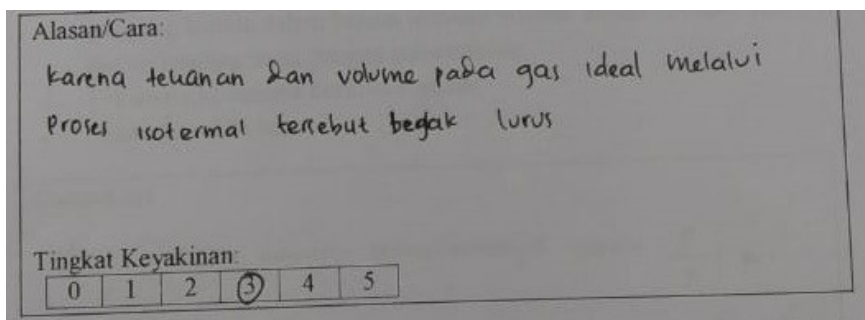 Alasan/Cara:
Karena tekanan dan volume pada gas ideal melalui
Proses isotermal tersebut begak lurus
Tingkat Keyakinan:
0 1 2 3 4 5